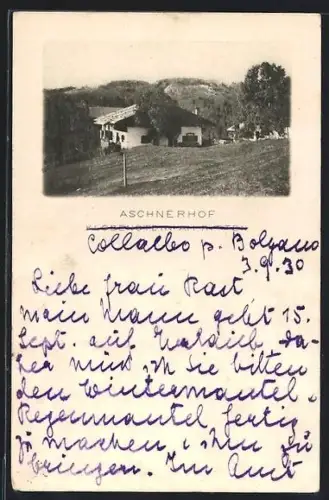 ASCHNERHOF
Collalbo p. Bolzano
3.9.30
Liebe Frau Rast
mein Mann geht 15.
Sept. auf Urlaub da-
her muß ich Sie bitten
den Wintermantel u.
Regenmantel fertig
zu machen u. ihm zu
bringen. Im Amt